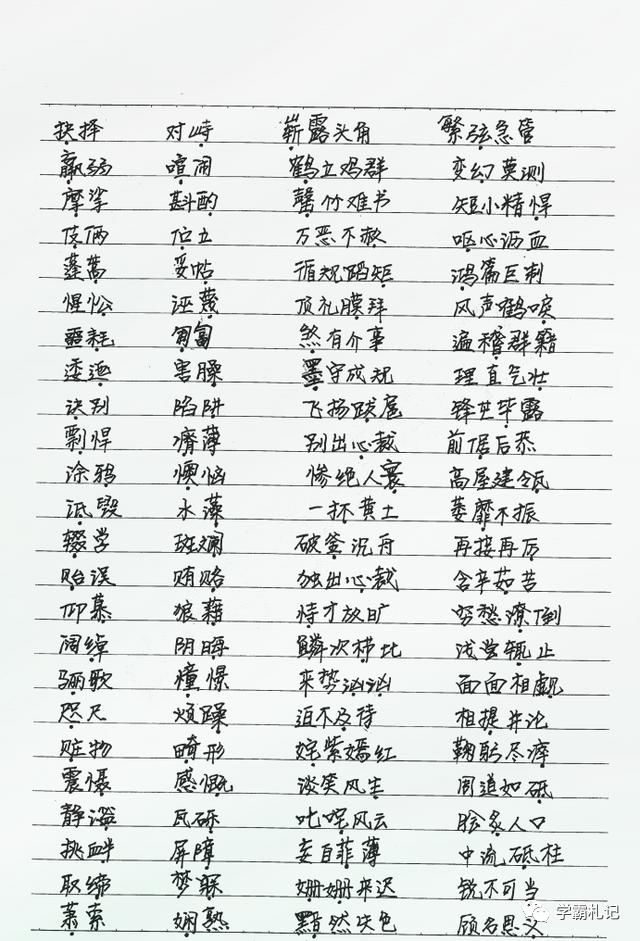 抉择 对峙 崭露头角 繁弦急管
羸弱 喧闹 鹤立鸡群 变幻莫测
摩挲 斟酌 罄竹难书 短小精悍
伎俩 伫立 万恶不赦 呕心沥血
蓬蒿 妥帖 循规蹈矩 鸿篇巨制
惺忪 诬蔑 顶礼膜拜 风声鹤唳
噩耗 匍匐 煞有介事 遍稽群籍
逶迤 害臊 墨守成规 理直气壮
诀别 陷阱 飞扬跋扈 锋芒毕露
剽悍 瘠薄 别出心裁 前倨后恭
涂鸦 懊恼 惨绝人寰 高屋建瓴
诋毁 水藻 一抔黄土 萎靡不振
辍学 斑斓 破釜沉舟 再接再厉
贻误 贿赂 独出心裁 含辛茹苦
仰慕 狼藉 恃才放旷 穷愁潦倒
阔绰 阴晦 鳞次栉比 浅尝辄止
骊歌 憧憬 来势汹汹 面面相觑
咫尺 烦躁 迫不及待 相提并论
赃物 畸形 姹紫嫣红 鞠躬尽瘁
震慑 感慨 谈笑风生 周道如砥
静谧 瓦砾 叱咤风云 脍炙人口
挑衅 屏障 妄自菲薄 中流砥柱
取缔 梦寐 姗姗来迟 锐不可当
萧索 娴熟 黯然失色 顾名思义
学霸札记